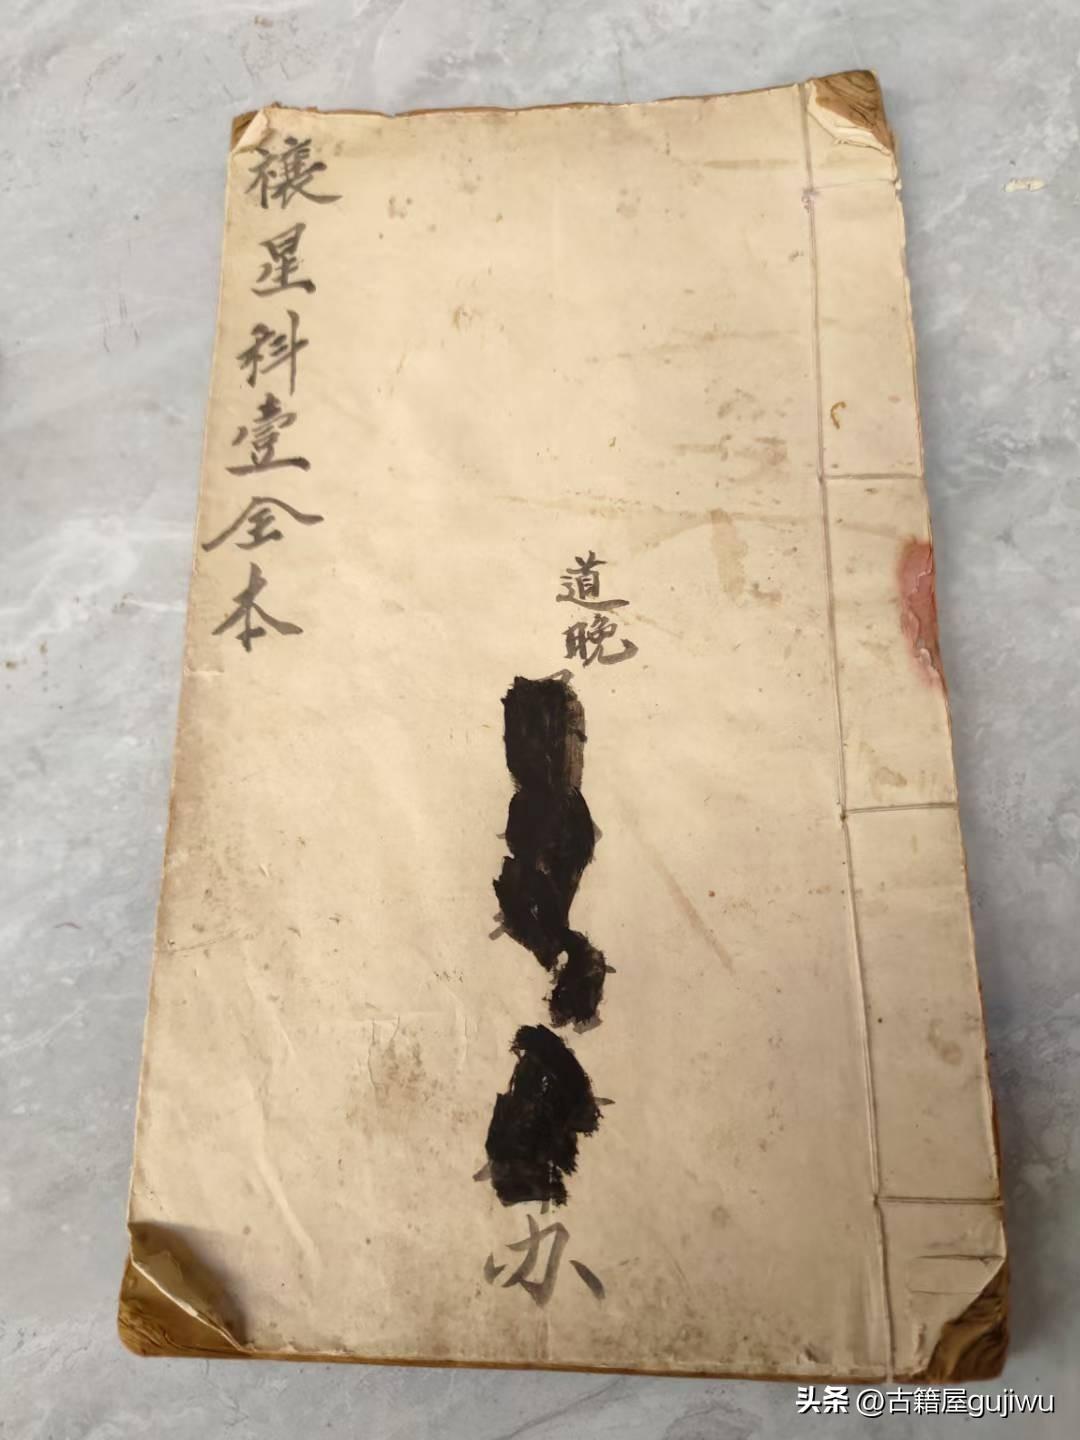 穰星科壹全本
道晚
办
头条 @古籍屋gujiwu